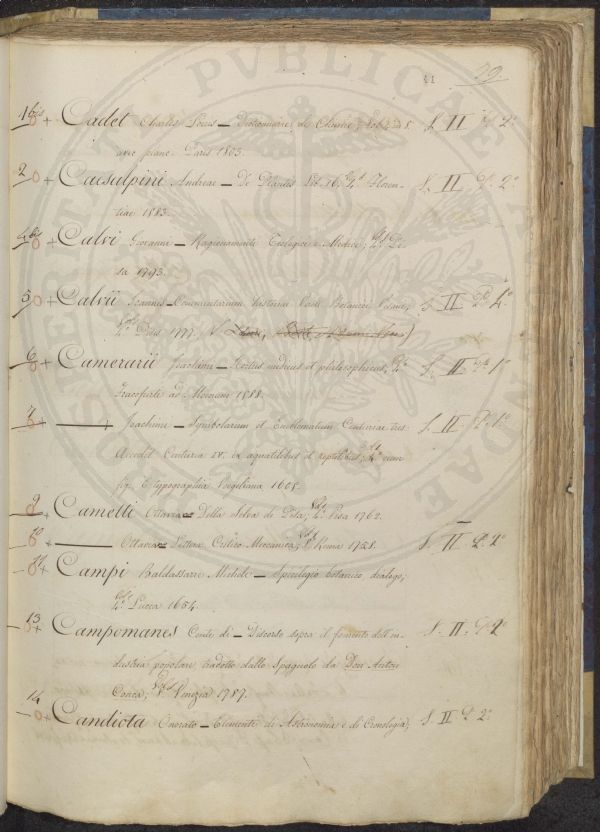 41 79.
1 bis 0 + Cadet Charles Louis — Dictionnaire de Chimie, Vol. 4 in 8. S. II P. 2°
avec planc. Paris 1803.
2 0 + Caesalpini Andreae — De Plantis Lib. 16; 4° Floren- S. II P. 2°
tiae 1583.
4 bis 0 + Calvi Giovanni — Ragionamenti Teologici e Medici; 4° Pi-
sa 1793.
5 0 + Calvii Joannis — Commentarium Historiae Vireti Botanici Pisani, S. II P. 4°
4° Pisis 1777.
6 0 + Camerarii Joachimi — Hortus medicus et philosophicus; 4° S. II P. 1°
Francofurti ad Moenum 1588.
7 0 + ——— Joachimi — Symbolarum et Emblematum Centuriae tres S. II P. 1°
Accedit Centuria IV. ex aquatilibus et reptilibus; 4° cum
fig. E typographia Voegeliana 1605.
9 0 + Camelti Ottaviano — Della Selva di Pisa; 4° Pisa 1762.
10 0 + ——— Ottaviano — Lettera Critico Meccanica; 8° Roma 1758. S. II P. 2°
11 0 + Campi Baldassarre Michele — Spicilegio botanico dialogo;
4° Lucca 1654.
13 0 + Campomanes Conte di — Discorso sopra il fomento dell'in- S. II. P. 2°
dustria popolare tradotto dallo Spagnolo da Don Anton
Conca; 8° Venezia 1787.
14 0 + Candiota Onorato — Elementi di Astronomia e di Cronologia; S. II P. 2°